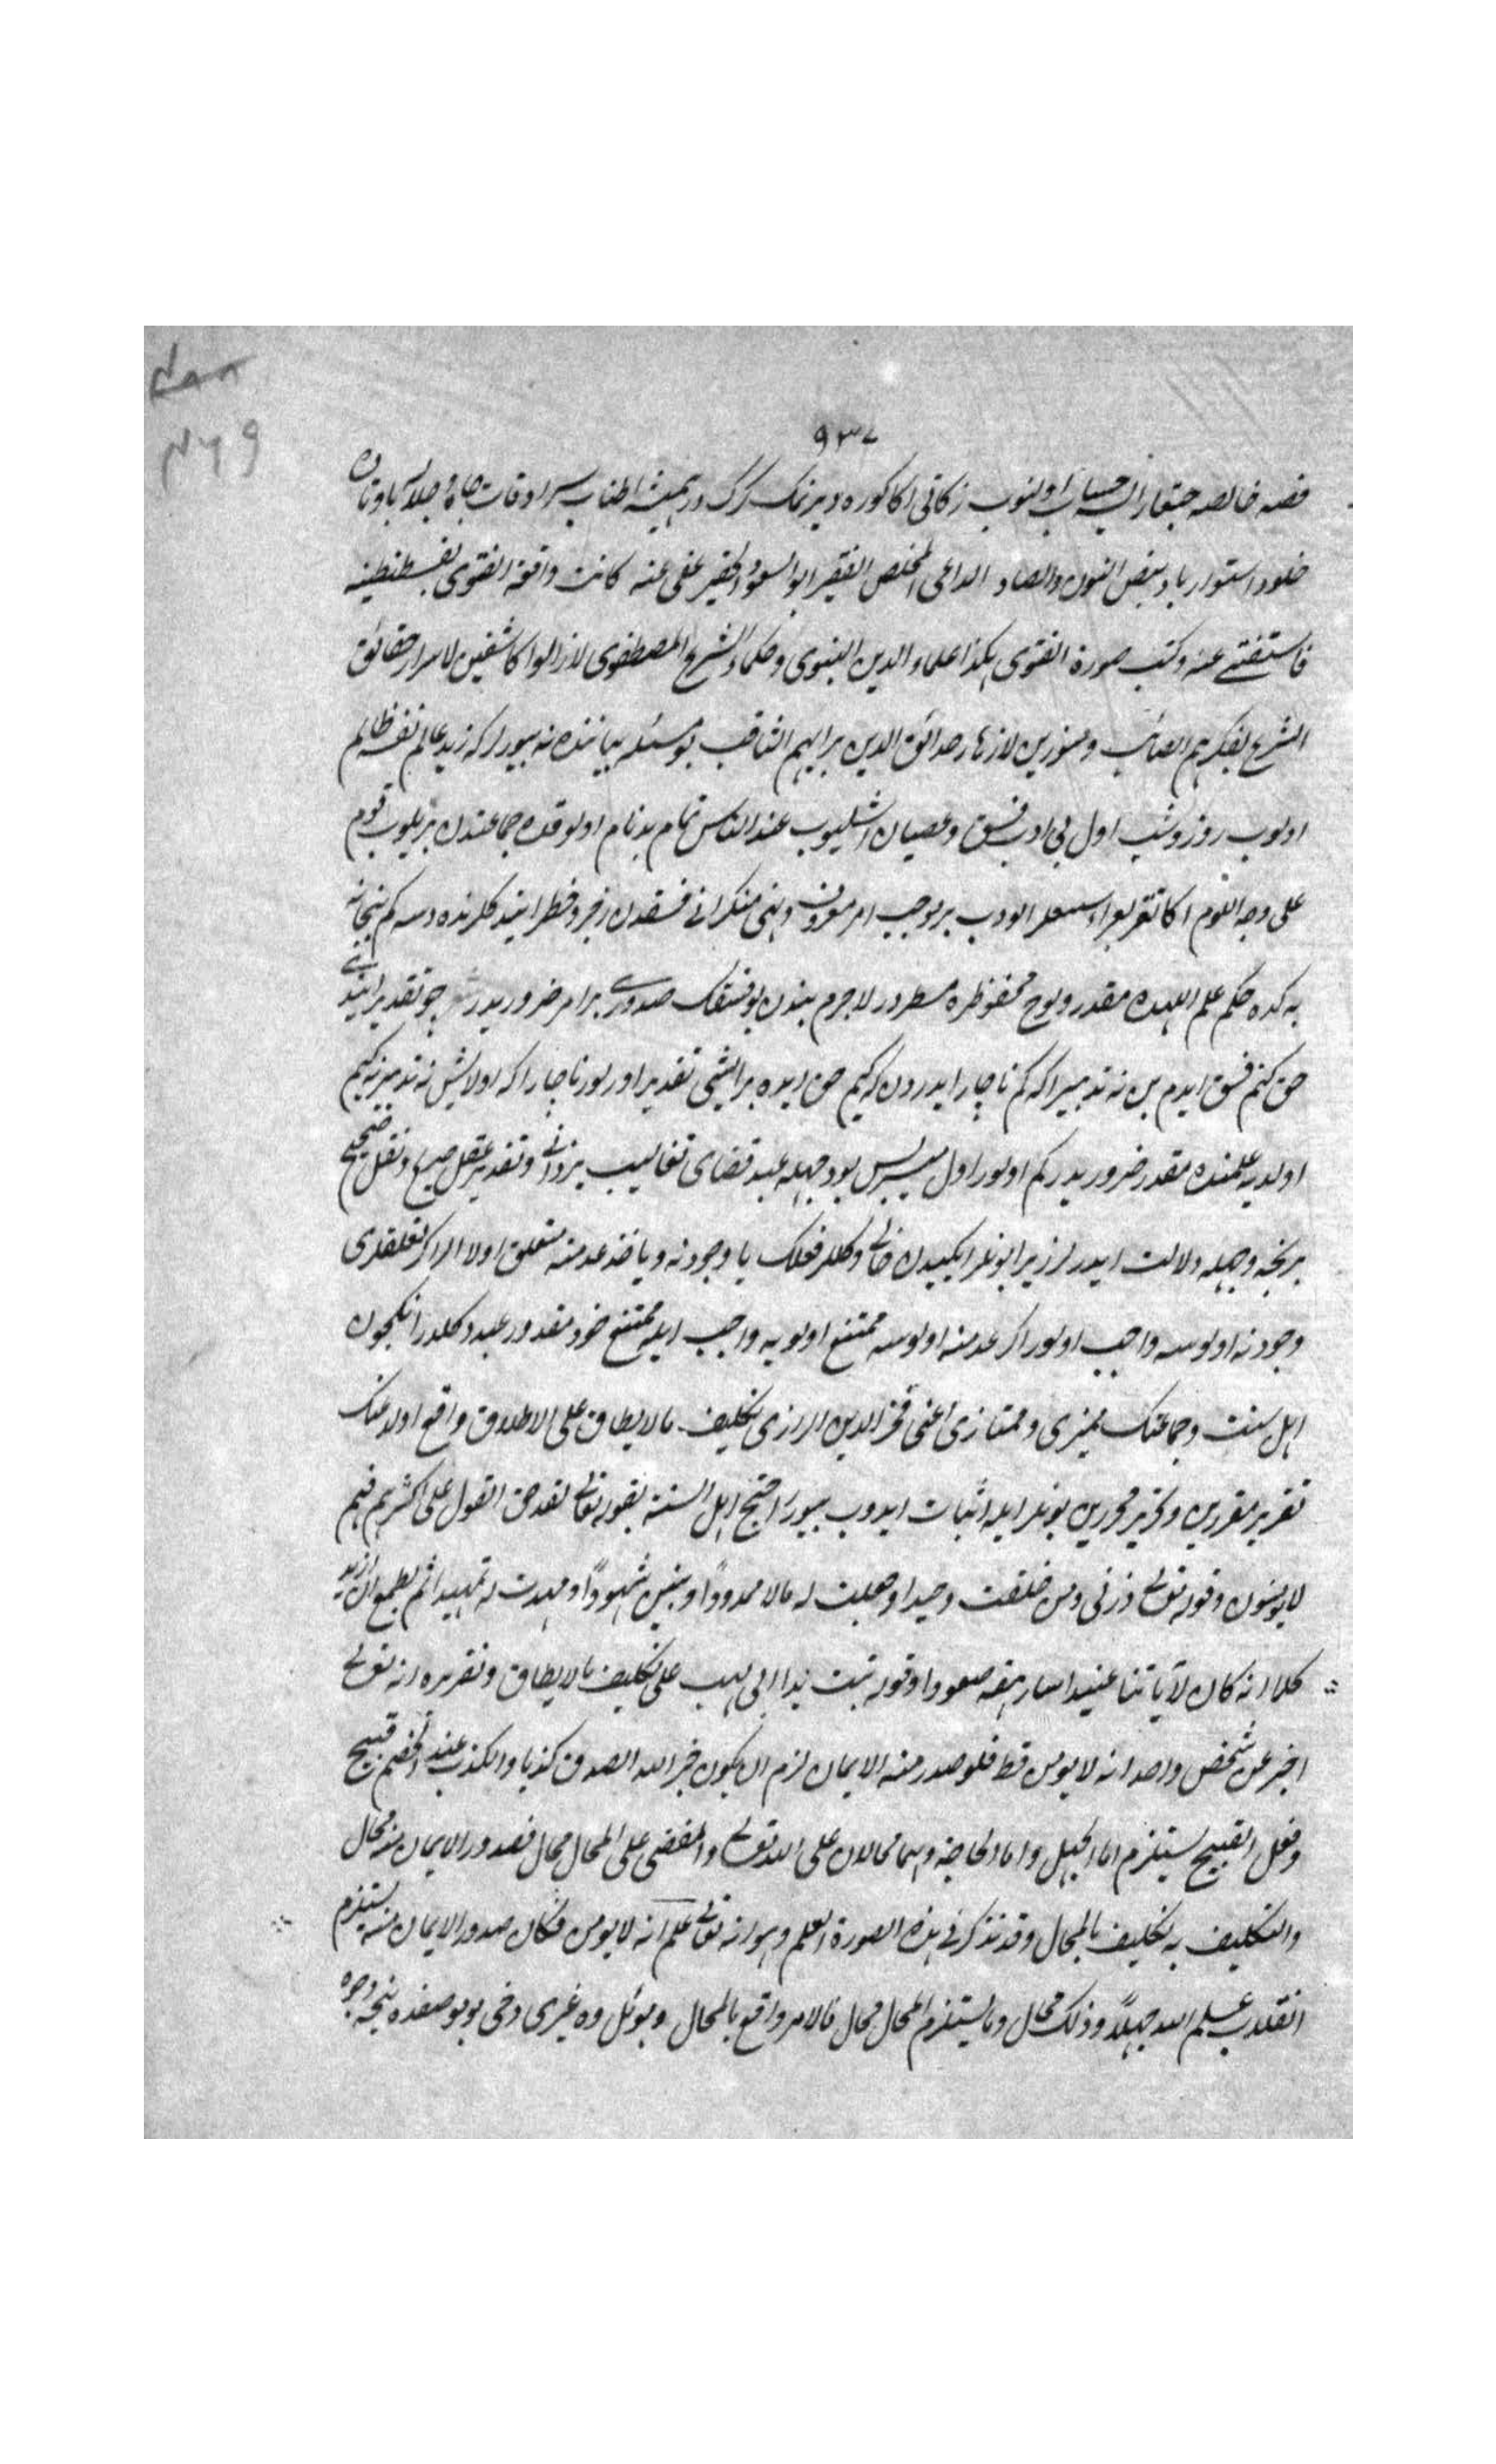 ٤٨٨
٤٦٩
٩٣٧
فضه خالصه حسابن اولنوب زكاتى اكا كوره ويرنمك كرك در هميشه اطناب سرادقات جاه و جلال باوتاد
خلود استوار باد بنص النون والصاد الداعى المخلص الفقير ابو السعود الحقير عفى عنه كانت واقعة الفتوى بقسطنطنيه
فاستفتى عنه وكتب صورة الفتوى هكذا علماء الدين النبوى وحكماء الشرع المصطفوى لازالوا كاشفين لاسرار حقائق
الشرع بفكرهم الصائب ومنورين لازهار حدائق الدين برايهم الثاقب بو مسئله بياننده نه بيورلر كه زيد عالم نفسه ظالم
اولوب روز و شب اول بى ادب فسق وعصيان اشليوب عند الناس تمام بدنام اولوقده جماعتدن بر بلوب قوم
على وجه اللوم اكا تقريع ايدوب بر موجب امر معروف ونهى منكر انى فسقدن زجر وخطر ايتدكلرنده ديسه كم
به كده حكم علم الهده مقدر ولوح محفوظده مسطردر لاجرم بندن بو فسقك صدورى بر امر ضروريدر چو تقدير ايتدى
حق كنم فسق ايدم بن نه تدبير اكه كم ناچار ايدردن كه كيم حق ايده بر ايشى تقدير اولور ناچار اكه اولا ايش نه تدبير كيم
اولديه علمنده مقدر ضروريدر كم اولور اول ميسر پس بو وجهله عبد قضاى تغاليب يزدانى وتقدير عقل صريح ونقل صحيح
بر نجه وجهله دلالت ايدرلر زيرا بونلر ايكيدن خالى دكلر فعلك يا وجودنه ويا خود عدمنه متعلق اولالر اكر تعلقلرى
وجودنه اولوسه واجب اولور اكر عدمنه اولوسه ممتنع اولور يه واجب ايله ممتنع خود مقدور عبد دكلدر انكچون
اهل سنت وجماعتك مميزى وممتازى اعنى فخر الدين الرازى تكليف مالا يطاق على الاطلاق واقع اولدغنك
تقرير مقررين وتحرير محررين بونلر ايله اثبات ايدوب بيورر احتج اهل السنة بقوله تعالى لقد حق القول على اكثرهم فهم
لا يؤمنون وقوله تعالى ذرنى ومن خلقت وحيدا وجعلت له مالا ممدودًا وبنين شهودًا ومهدت له تمهيدا ثم يطمع ان ازيد
كلا انه كان لآياتنا عنيدا سارهقه صعودا وقوله تبت يدا ابى لهب على تكليف ما لا يطاق وتقريره انه تعالى
اخبر عن شخص واحد انه لا يؤمن قط فلو صدر منه الايمان لزم ان يكون خبر الله الصدق كذبا والكذب عند الخصم قبيح
وفعل القبيح يستلزم اما الجهل واما الحاجة وهما محالان على الله تعالى والمفضى على المحال محال فصدور الايمان منه محال
والتكليف به تكليف بالمحال وقد تذكر فى هذه الصورة العلم وهو انه تعالى علم انه لا يؤمن فكان صدور الايمان منه يستلزم
انقلاب علم الله جهلاً وذلك محال وما يستلزم المحال محال فالامر واقع بالمحال وبونلر وه غيرى دخى بو بوصفده نيجه وجوه